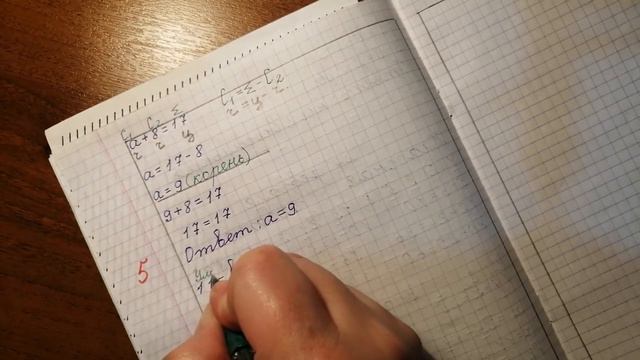 C₁ C₂ Σ
a+8=17
ч ч ц
C₁=Σ-C₂
ч=ц-ч.
a=17-8
a=9 (корень)
9+8=17
17=17
Ответ: a=9
5